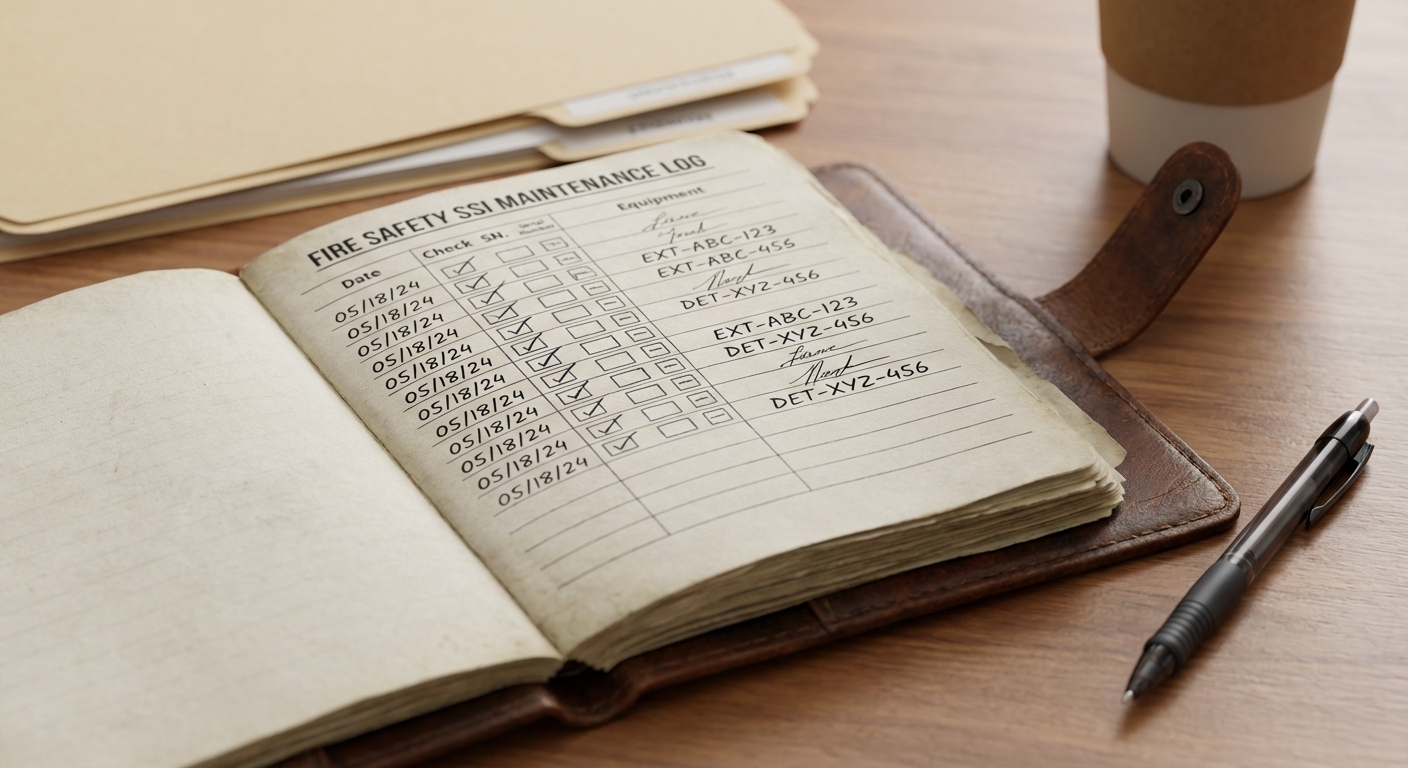 FIRE SAFETY SSI MAINTENANCE LOG
Date Check S.N. Equipment
05/18/24
05/18/24
05/18/24 EXT-ABC-123
05/18/24 EXT-ABC-455
05/18/24
05/18/24 DET-XYZ-456
05/18/24
05/18/24 EXT-ABC-123
05/18/24 DET-XYZ-456
05/18/24
05/18/24
05/18/24 DET-XYZ-456